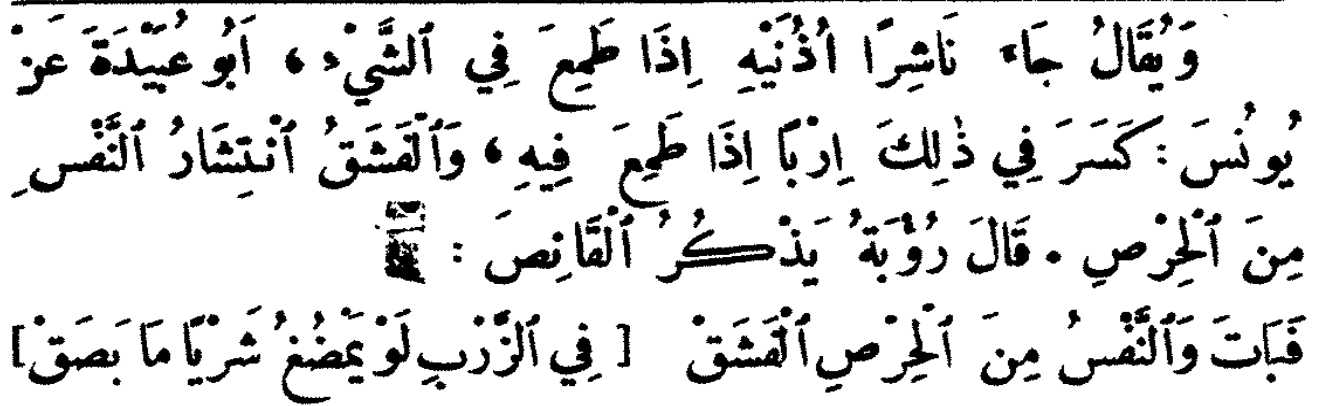 وَيُقَالُ جَاءَ نَاشِرًا أُذُنَيْهِ إِذَا طَمِعَ فِي ٱلشَّيْءِ ، أَبُو عُبَيْدَةَ عَنْ
يُونُسَ : كَسَرَ فِي ذٰلِكَ إِرْبًا إِذَا طَمِعَ فِيهِ ، وَٱلْفَشَقُ ٱنْتِشَارُ ٱلنَّفْسِ
مِنَ ٱلْحِرْصِ . قَالَ رُؤْبَةُ يَذْكُرُ ٱلْقَانِصَ :
فَبَاتَ وَٱلنَّفْسُ مِنَ ٱلْحِرْصِ ٱلْفَشَقْ [ فِي ٱلزَّرْبِ لَوْ يَمْضُغُ شَرْيًا مَا بَصَقْ ]